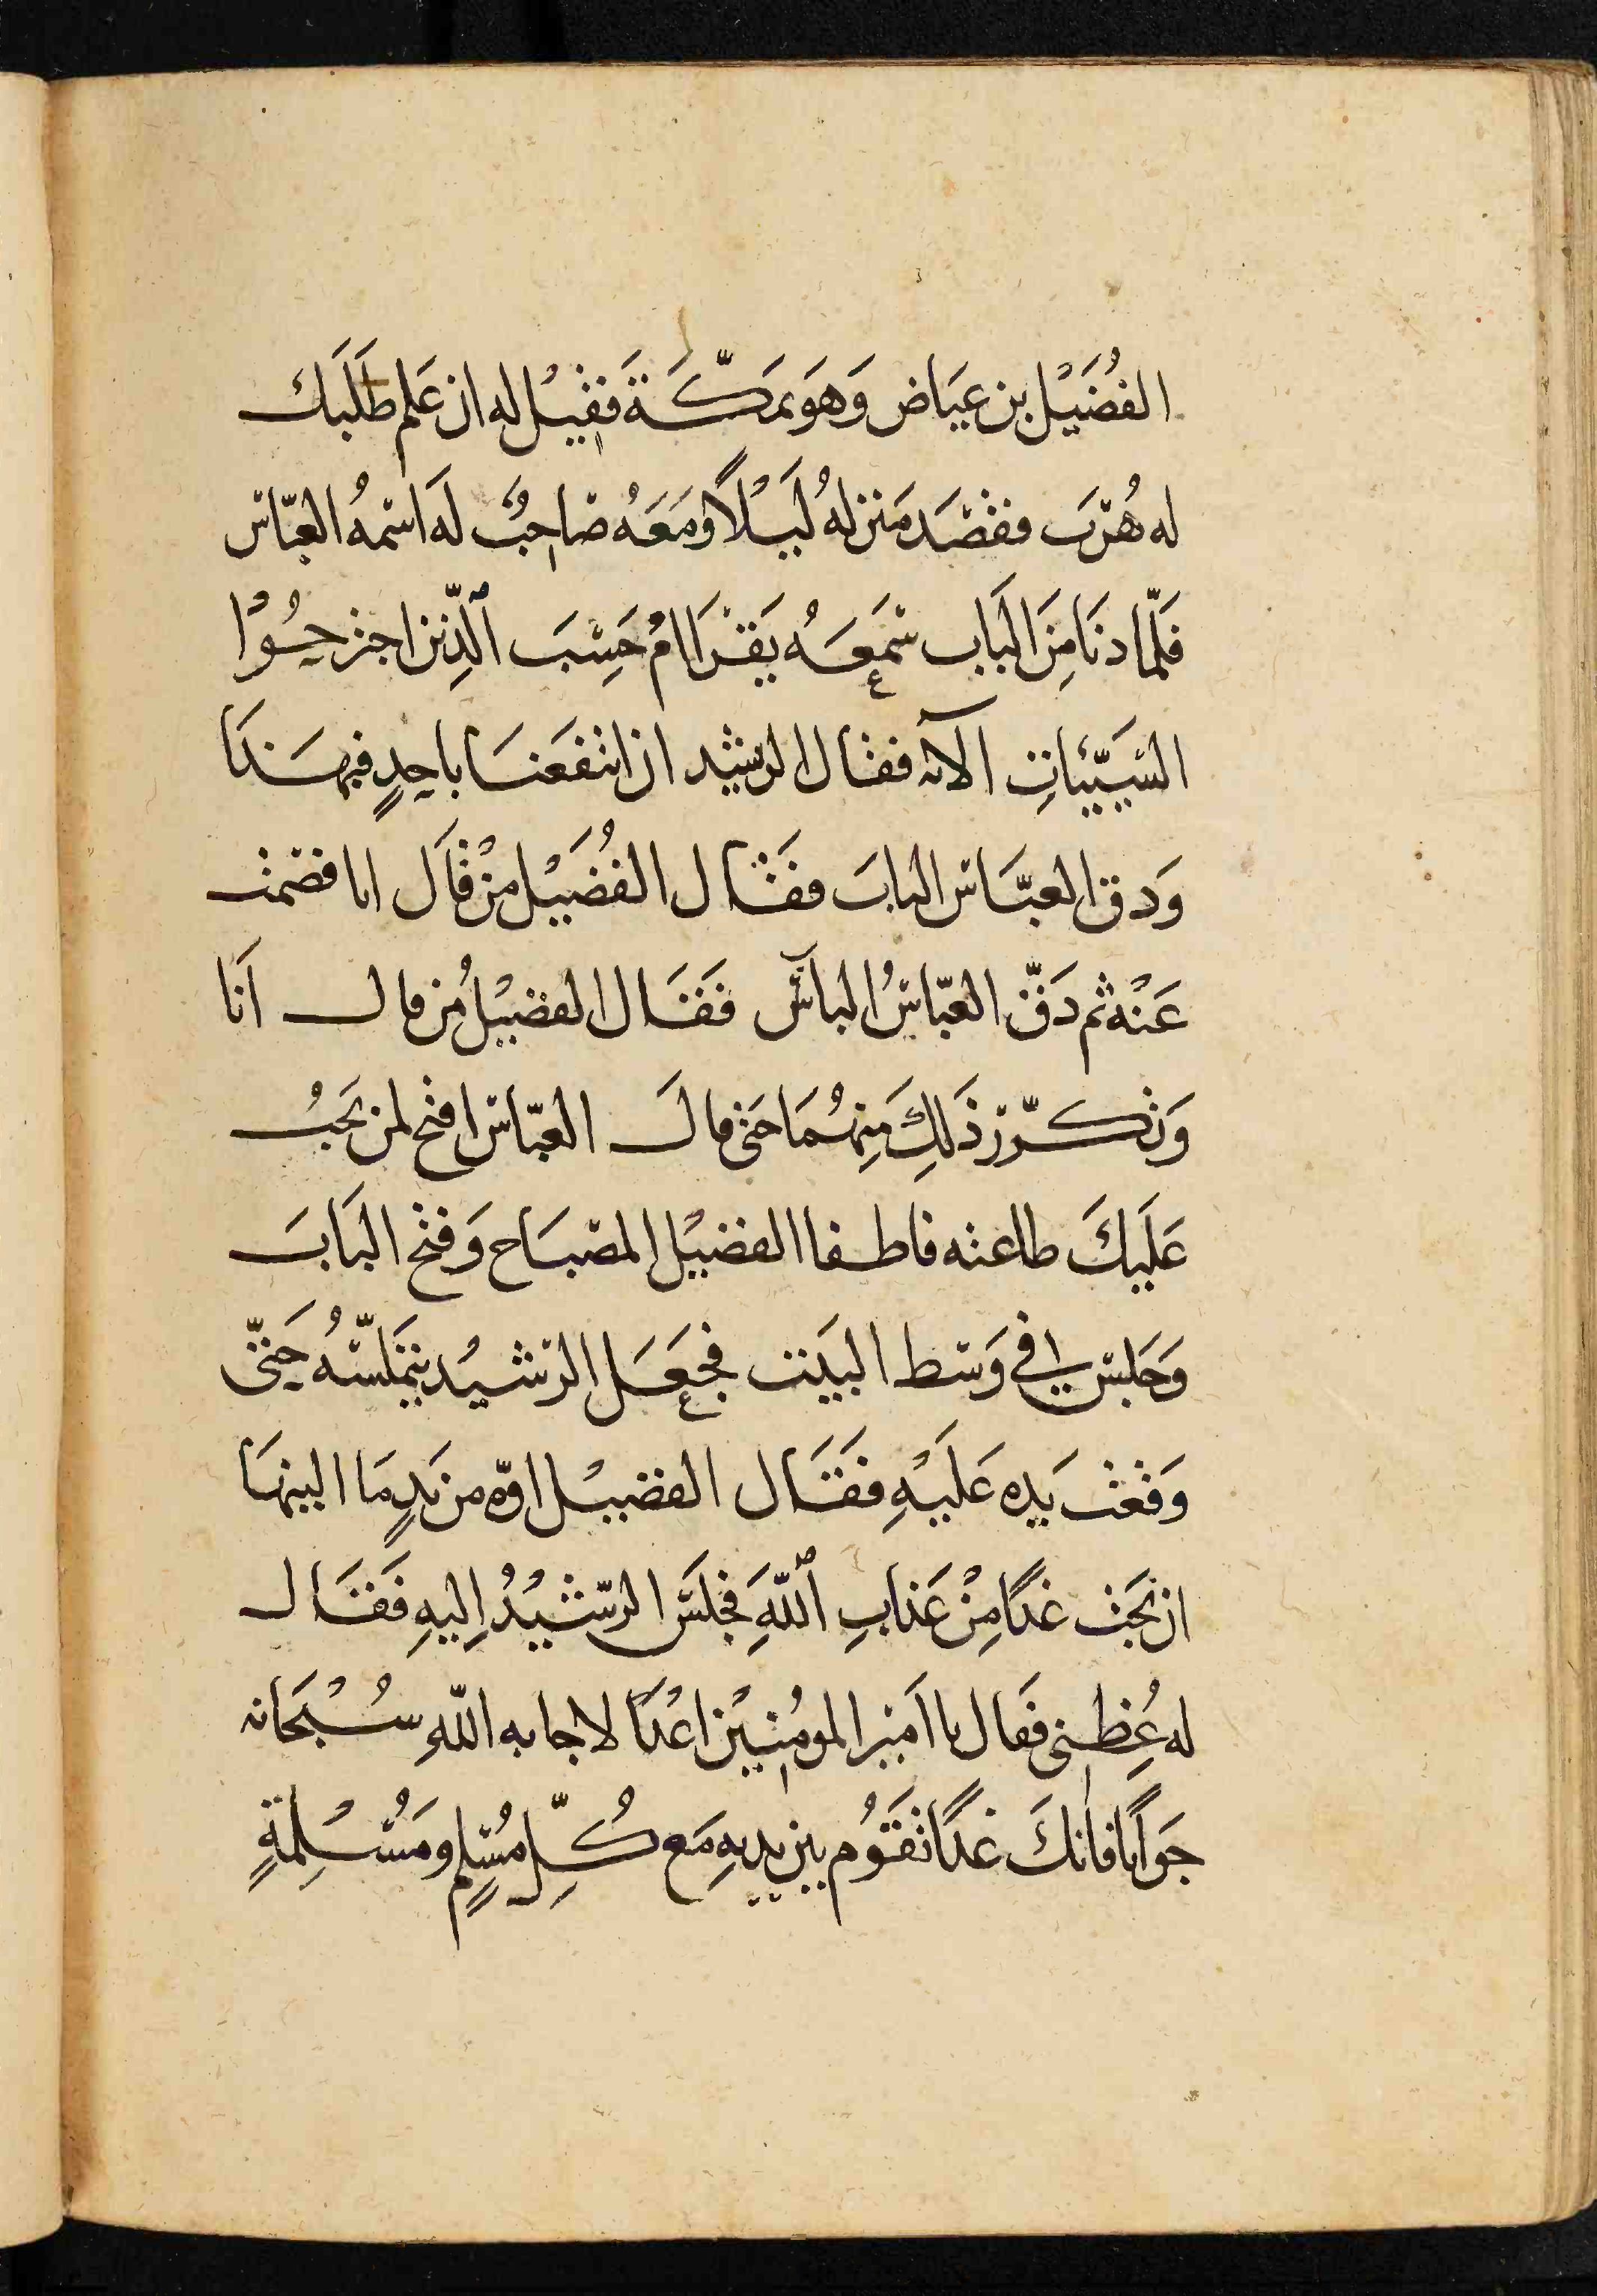 الفُضَيْل بن عيَاض وَهوَ بمَكّةَ فَقيْل له ان عَلم طَلَبك
له هُرّبَ فقصَد مَنزلهُ لَيْلًا ومَعَهُ صَاحِبٌ لهَ اسْمهُ العبّاس
فَلّما دنَا مِنَ البَاب سَمعَهُ يَقْرَا امْ حَسِبَ ٱلّذِين اجترحُوْا
السَّيّئاتِ الآيه فقال الرشيد ان انتفَعنَا باحدٍ فبهَذَا
وَدق العبَّاس البابَ فقَال الفُضَيْل منْ قاَل انا فصَمت
عَنْه ثم دَقّ العبّاسُ البابَ فَقَال الفضيْل مُن قال اَنا
وَتكرّر ذَلِكَ مِنهُمَا حَتى قالَ العبّاس افتح لمن يَجبُ
عَلَيكَ طاعته فاطفا الفضيْل المصْبَاح وَفتح البَابَ
وَجَلسَ في وَسَط البيَت فجعَل الرّشيْد يتمَلسّهُ حَتىّ
وَقعَت يَده عَليْهِ فقَال الفضيْل اوّه من يَدٍ مَا الينهَا
ان نَجَت غدًا مِنْ عَذابِ ٱللّهَِ فجلَسَ الرّشيْدُ اِليهِ فَقَال
له عِظني فقَال يا اَمير المومُنِيْن اعْدَّا لاجابه اللّهِ سُبْحَانه
جَوَابًا فانكَ غدًا تَقَوُم بين يديهِ مَع كُلِّ مُسْلمٍ ومَسُسْلِمةٍ